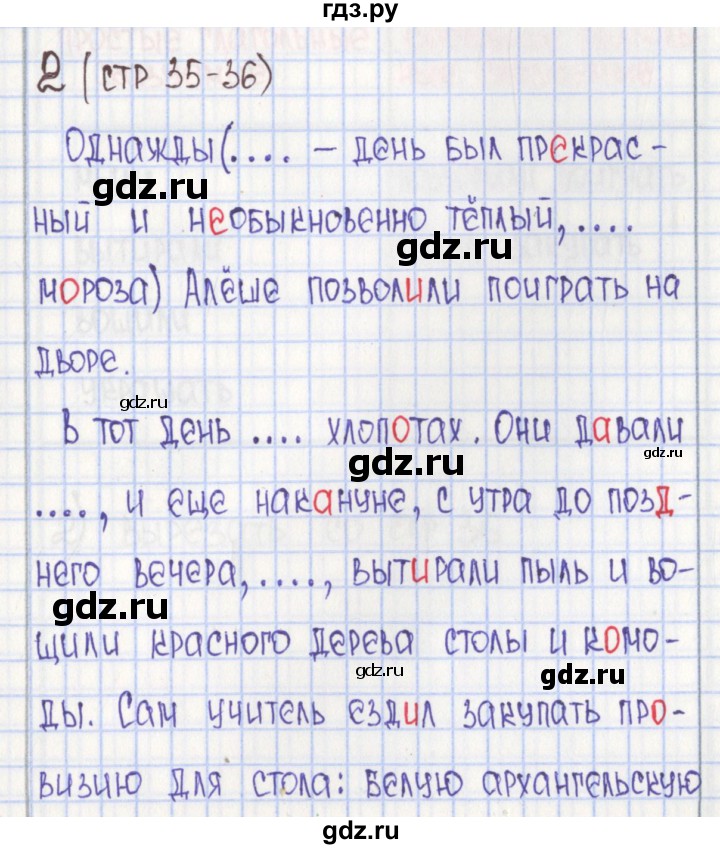 гдз.ру
2 (стр 35-36)
Однажды (.... – день был прекрас-
gdz.ru
ный и необыкновенно тёплый, ....
gdz.ru
мороза) Алёше позволили поиграть на
дворе.
gdz.ru
В тот день .... хлопотах. Они давали
gdz.ru
gdz.ru
...., и еще накануне, с утра до позд-
него вечера, ...., вытирали пыль и во-
gdz.ru
щили красного дерева столы и комо-
gdz.ru
ды. Сам учитель ездил закупать про-
визию для стола: белую архангельскую
gdz.ru